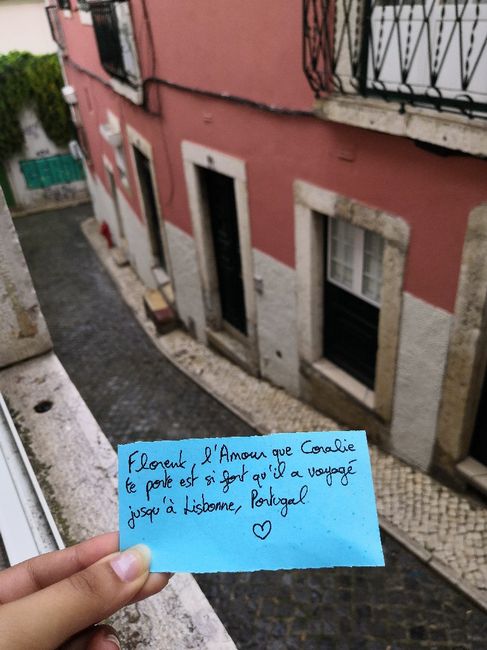 Florent, l'Amour que Coralie
te porte est si fort qu'il a voyagé
jusqu'à Lisbonne, Portugal
♡